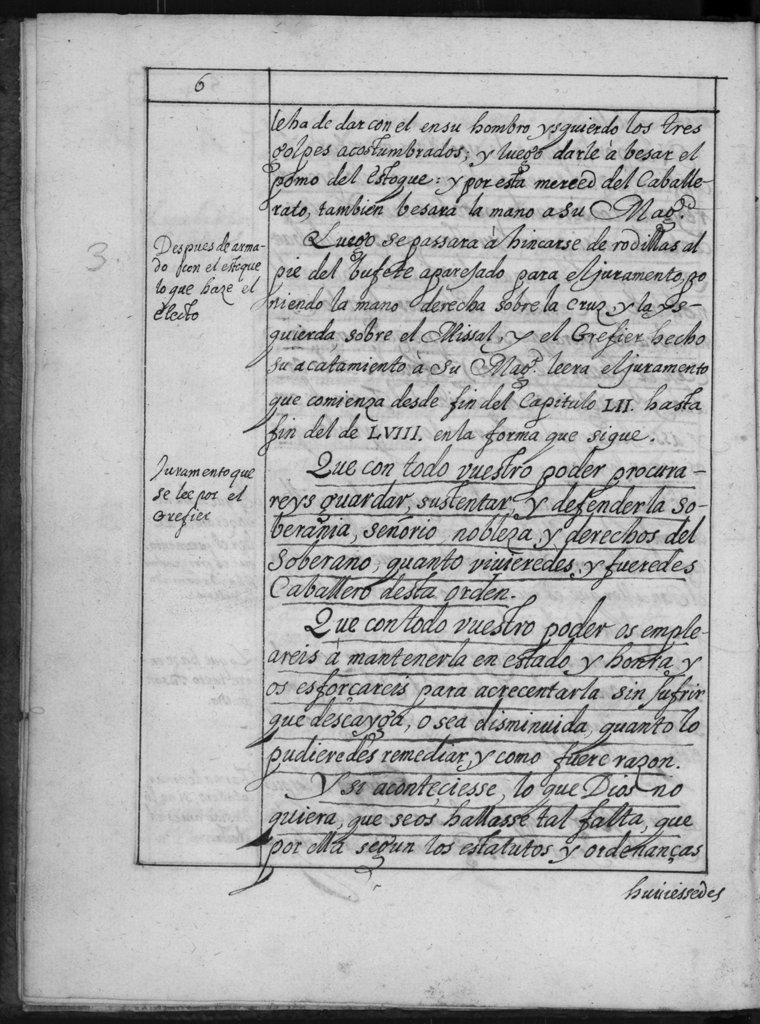 6
le ha de dar con el en su hombro ysquierdo los tres
golpes acostumbrados; y luego darle à besar el
pomo del Estoque: y por esta merced del Caballe-
rato, tambien besarà la mano a Su Mag.d
Luego se passara à hincarse de rodillas al
pie del bufete aparejado para el juramento, po
niendo la mano derecha sobre la cruz, y la ys-
quierda, sobre el Missal, y el Grefier hecho
su acatamiento à Su Mag.d leera el juramento
que comienza desde fin del Capitulo LII. hasta
fin del de LVIII. en la forma que sigue.
Que con todo vuestro poder procura-
reys guardar, sustentar, y defender la so-
berania, senorio, nobleza, y derechos del
Soberano, quanto viuieredes, y fueredes
Caballero desta orden.
Que con todo vuestro poder os emple-
areis à mantenerla en estado, y honra, y
os esforçareis para acrecentarla sin sufrir
que descayga, o sea disminuida, quanto lo
pudieredes remediar, y como fuere razon.
Y si aconteciesse, lo que Dios no
quiera, que se os hallasse tal falta, que
por ella segun los estatutos y ordenanças
huuiessedes
3.
Despues de arma-
do con el estoque
lo que haze el
electo
Juramento que
se lee por el
Grefier